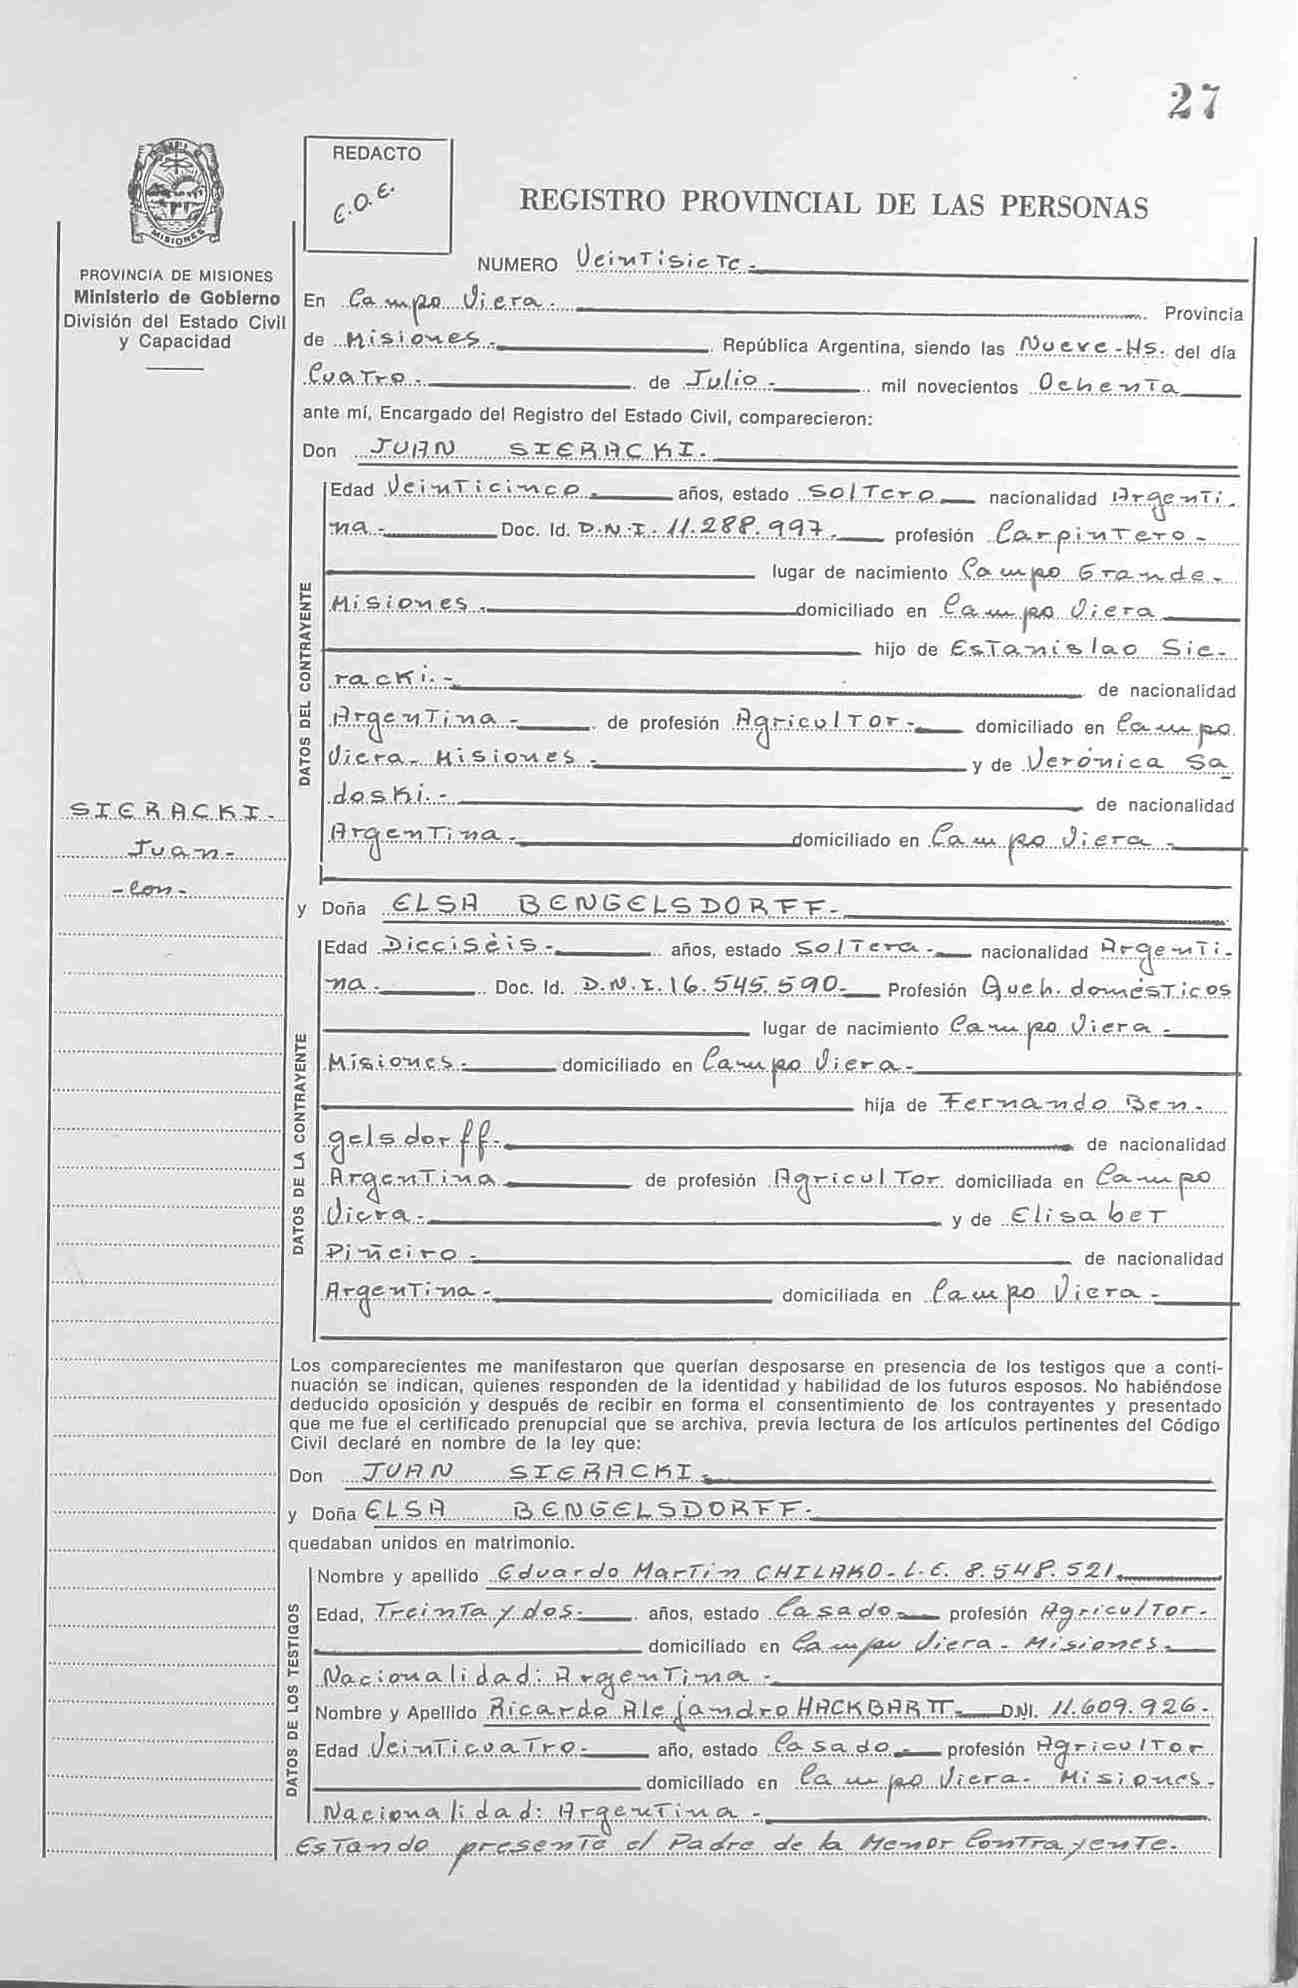 27
REDACTO
E.O.E.
REGISTRO PROVINCIAL DE LAS PERSONAS
MISIONES
PROVINCIA DE MISIONES
Ministerio de Gobierno
División del Estado Civil
y Capacidad
SIERACKI.-
Juan-
-Con-
NUMERO Veintisiete-
En Campo Viera.- Provincia
de Misiones.- República Argentina, siendo las Nueve-Hs. del día
Cuatro- de Julio- mil novecientos Ochenta
ante mí, Encargado del Registro del Estado Civil, comparecieron:
Don JUAN SIERACKI.-
DATOS DEL CONTRAYENTE
Edad Veinticinco- años, estado Soltero nacionalidad Argenti-
na- Doc. Id. D.N.I. 11.288.997- profesión Carpintero-
lugar de nacimiento Campo Grande-
Misiones- domiciliado en Campo Viera
hijo de Estanislao Sie-
racki.- de nacionalidad
Argentina- de profesión Agricultor- domiciliado en Campo
Viera- Misiones- y de Verónica Sa
doski.- de nacionalidad
Argentina- domiciliado en Campo Viera-
y Doña ELSA BENGELSDORFF-
DATOS DE LA CONTRAYENTE
Edad Dieciséis- años, estado Soltera- nacionalidad Argenti-
na- Doc. Id. D.N.I. 16.545.590- Profesión Queh. domésticos
lugar de nacimiento Campo Viera-
Misiones- domiciliado en Campo Viera-
hija de Fernando Ben-
gelsdorff- de nacionalidad
Argentina de profesión Agricultor domiciliada en Campo
Viera- y de Elisabet
Piñeiro- de nacionalidad
Argentina- domiciliada en Campo Viera-
Los comparecientes me manifestaron que querían desposarse en presencia de los testigos que a conti-
nuación se indican, quienes responden de la identidad y habilidad de los futuros esposos. No habiéndose
deducido oposición y después de recibir en forma el consentimiento de los contrayentes y presentado
que me fue el certificado prenupcial que se archiva, previa lectura de los artículos pertinentes del Código
Civil declaré en nombre de la ley que:
Don JUAN SIERACKI-
y Doña ELSA BENGELSDORFF-
quedaban unidos en matrimonio.
DATOS DE LOS TESTIGOS
Nombre y apellido Eduardo Martin CHILAKO- L.E. 8.548.521.
Edad, Treinta y dos- años, estado Casado- profesión Agricultor-
domiciliado en Campo Viera- Misiones-
Nacionalidad: Argentina-
Nombre y Apellido Ricardo Alejandro HACKBARTT- DNI. 11.609.926-
Edad Veinticuatro- año, estado Casado- profesión Agricultor
domiciliado en Campo Viera- Misiones-
Nacionalidad: Argentina-
Estando presente el Padre de la Menor Contrayente-